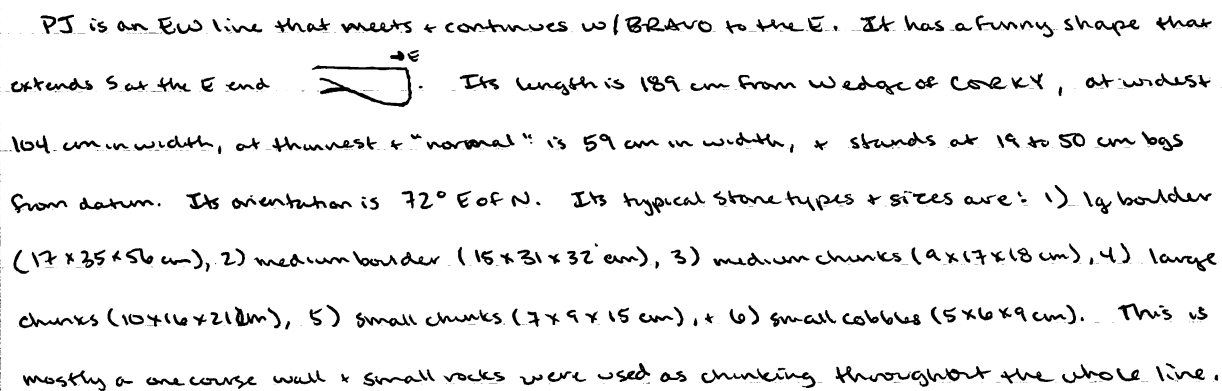 PJ is an EW line that meets + continues w/BRAVO to the E. It has a funny shape that
→E
extends S at the E end . Its length is 189 cm from wedge of CORKY, at widest
104 cm in width, at thinnest + "normal" is 59 cm in width, + stands at 19 to 50 cm bgs
from datum. Its orientation is 72° E of N. Its typical stone types + sizes are: 1) lg boulder
(17 x 35 x 56 cm), 2) medium boulder (15 x 31 x 32 cm), 3) medium chunks (9 x 17 x 18 cm), 4) large
chunks (10 x 16 x 21 cm), 5) small chunks (7 x 9 x 15 cm), + 6) small cobbles (5 x 6 x 9 cm). This is
mostly a one course wall + small rocks were used as chinking throughout the whole line.